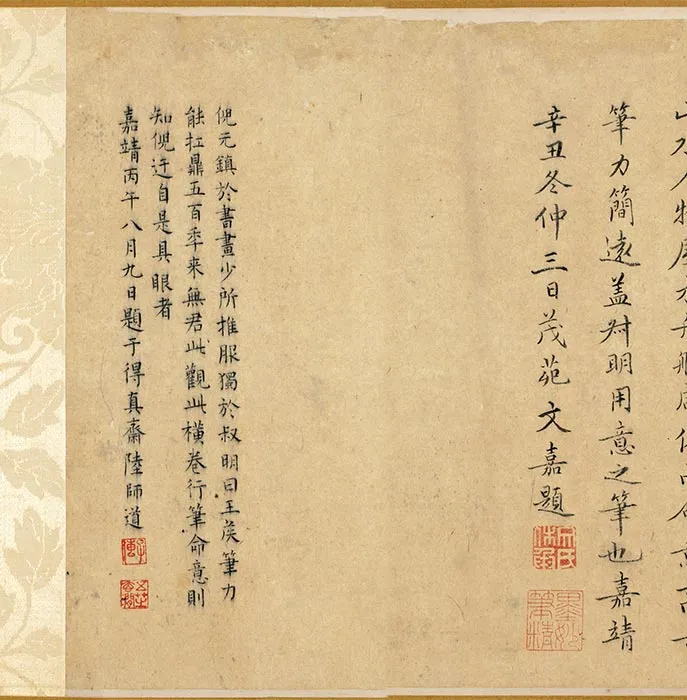 山水人物屋木舟船
筆力簡遠盖叔明用意之筆也嘉靖
辛丑冬仲三日茂苑文嘉題
墨妙筆精
倪元鎮於書畫少所推服獨於叔明曰王侯筆力
能扛鼎五百秊来無君此觀此横卷行筆命意則
知倪迂自是具眼者
嘉靖丙午八月九日題于得真齋陸師道
子傳